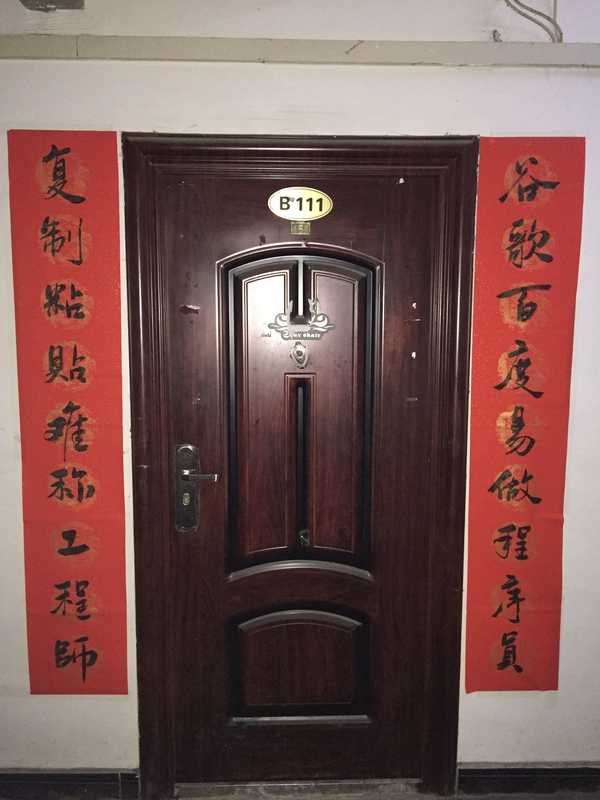 谷歌百度易做程序员
复制粘贴难称工程師
B 111